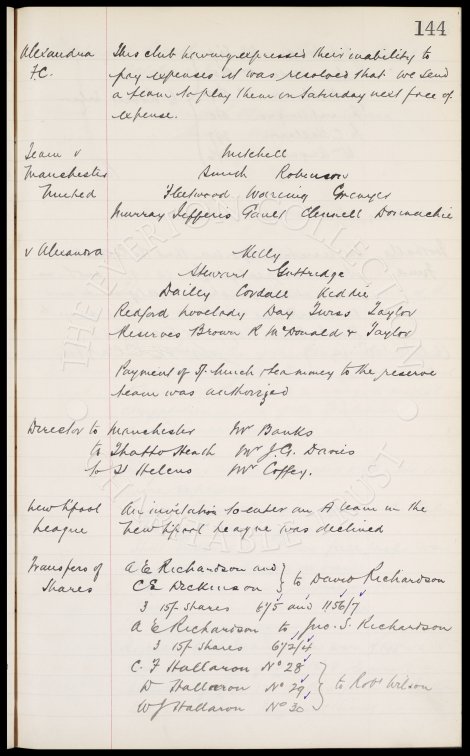 144
Alexandra F.C.
This club having expressed their inability to
pay expenses it was resolved that we send
a team to play them on Saturday next free of
expense.
Team v Manchester United
Mitchell
Smith Robinson
Fleetwood Wareing Grenyer
Murray Jefferis Gault Clennell Donnachie
v Alexandra
Kelly
Stewart Guttridge
Dailey Cordall Kiddie
Redford Lovelady Day Twiss Taylor
Reserves Brown R McDonald & Taylor
Payment of 5/- lunch & tea money to the reserve
team was authorized
Director to Manchester Mr Banks
to Thatto Heath Mr J.G. Davies
to St Helens Mr Coffey.
New L'pool League
An invitation to enter an A team in the
New L'pool League was declined
Transfers of Shares
A E Richardson and
C E Dickinson } to David Richardson
3 15/- shares 67/5 and 1156/7
A E Richardson to Jno. S. Richardson
3 15/- shares 672/4
C. F Hallaron No 28
D Hallaron No 29
W J Hallaron No 30 } to Robt Wilson
THE EVERTON COLLECTION
CHARITABLE TRUST